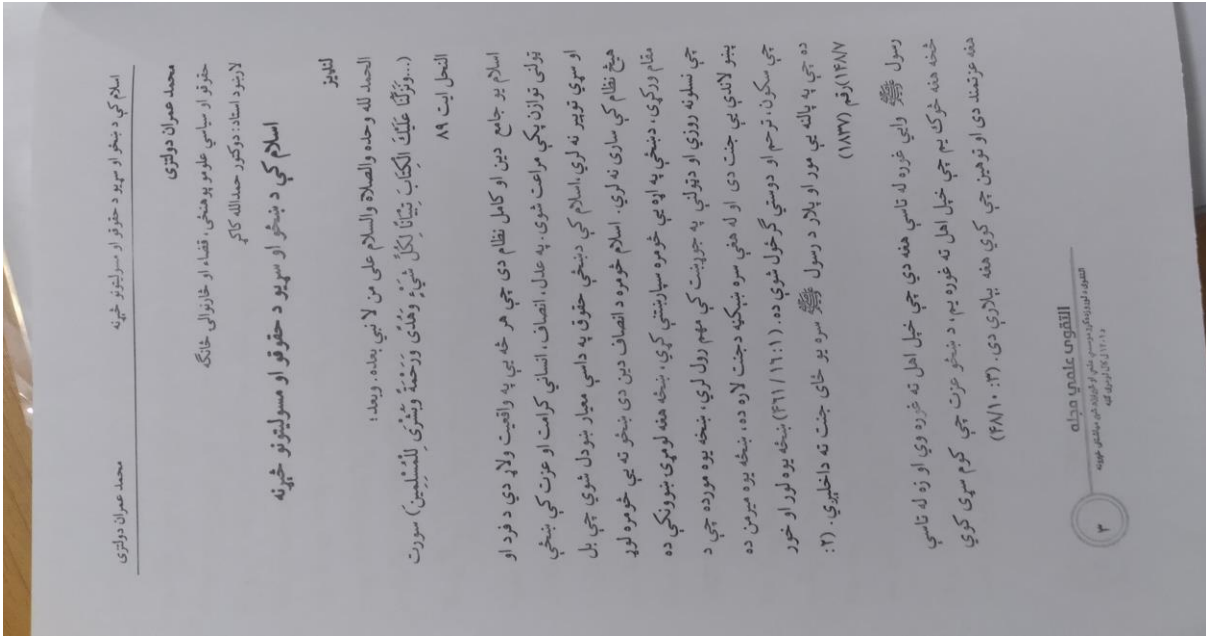 اسلام کې د ښځو او سړيو د حقوقو او مسوليتونو څېړنه
محمد عمران دولتزی
محمد عمران دولتزی
حقوقو او سياسي علومو پوهنځی، قضاء او څارنوالی څانګه
لارښود استاد: دوکتور حمدالله کاکړ
اسلام کې د ښځو او سړيو د حقوقو او مسوليتونو څېړنه
لنډيز
الحمد لله وحده والصلاة والسلام علی من لا نبي بعده. وبعد:
(...وَنَزَّلْنَا عَلَيْكَ الْكِتَابَ تِبْيَانًا لِكُلِّ شَيْءٍ وَهُدًى وَرَحْمَةً وَبُشْرَى لِلْمُسْلِمِينَ) سورت
النحل ايت ۸۹
اسلام يو جامع دين او کامل نظام دی چې هر څه يې په واقعيت ولاړ دي د فرد او
ټولنې توازن پکې مراعت شوی. په عدل، انصاف، انساني کرامت او عزت کې ښځې
او سړي توپير نه لري، اسلام کې دښځې حقوق په داسې معيار ښودل شوي چې بل
هيڅ نظام کې ساری نه لري. اسلام څومره د انصاف دين دی ښځو ته يې څومره لوړ
مقام ورکړی، دښځې په اړه يې څومره سپارښتنې کړي، ښځه هغه لومړی ښوونکې ده
چې نسلونه روزي او دټولنې په جوړښت کې مهم رول لري، ښځه يوه مورده چې د
پښو لاندې يې جنت دی او له هغې سره ښېګڼه دجنت لاره ده، ښځه يوه ميرمن ده
چې سکون، ترحم او دوستي ګرځول شوي ده. (۱: ۱۶ /۴۶۱) ښځه يوه لور او خور
ده چې په پالنه يې مور او پلار د رسول ﷺ سره يو ځای جنت ته داخليږي. (۲:
۱۴۸/۷)رقم (۱۸۳۷)
رسول ﷺ وايي غوره له تاسې هغه دی چې خپل اهل ته غوره وي او زه له تاسې
څخه هغه څوک يم چې خپل اهل ته غوره يم، د ښځو عزت چې کوم سړی کوي
هغه عزتمند دی او توهين چې کوي هغه بېلارې دی. (۳: ۴۸/۱۰)
التقوی علمي مجله
۳